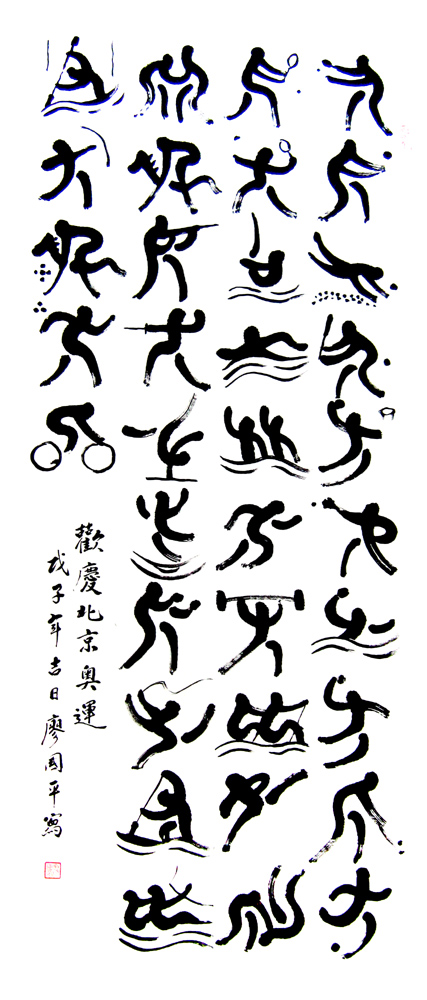 歡慶北京奥運
戊子年吉日廖国平寫